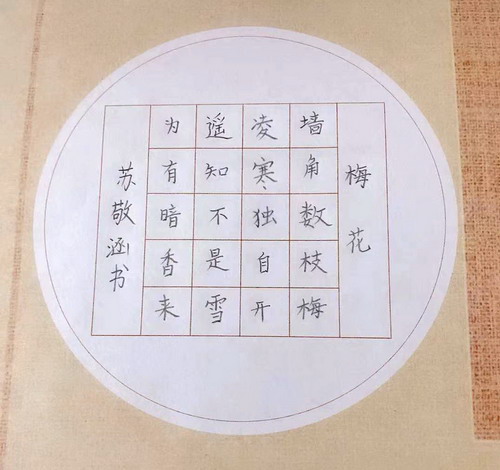 梅花
墙角数枝梅
凌寒独自开
遥知不是雪
为有暗香来
苏敬涵书